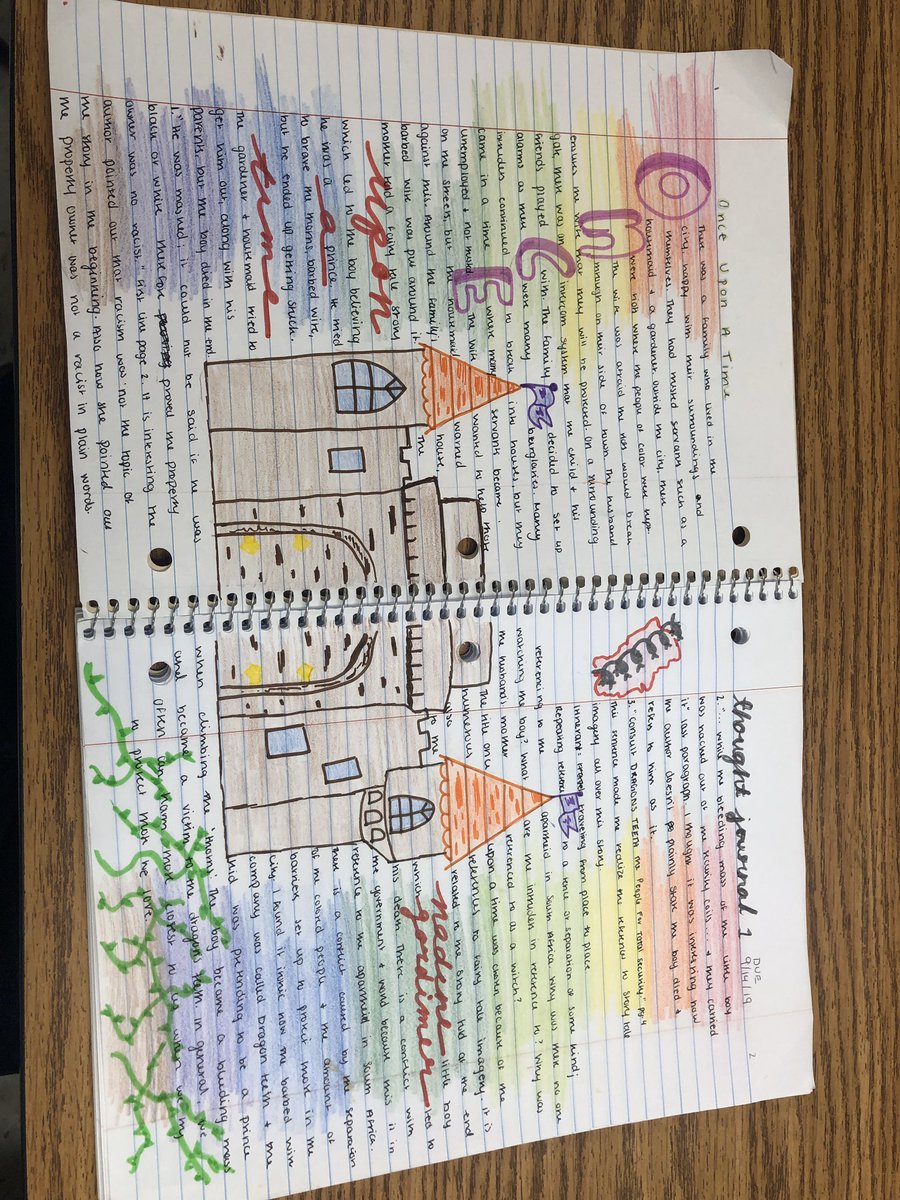 1
Once Upon A Time
There was a family who lived in the
city, happy with their surroundings and
themselves. They had trusted servants such as a
housmaid & a gardener. Outside the city, there
were riots where the people of color were kept.
The wife was afraid the riots would break
through on their side of town. The husband
ensures the wife that they will be protected. On a surrounding
gate there was an intercom system that the child & his
friends played with. The family decided to set up
alarms as there were many burglaries. Many
intruders continued to break into houses, but they
came in a time where many servants became
unemployed & not trusted. The wife wanted to help those
on the streets, but the housemaid warned
against this. Around the family's house,
barbed wire was put around it. The
mother had a fairy tale story
which led to the boy believing
he was a prince. He tried
to brave the thorns, barbed wire,
but he ended up getting stuck.
The gardener & housmaid tried to
get him out, along with his
parents, but the boy died in the end.
1. "He was masked; it could not be said if he was
black or white. Therefore proved the property
owner was no racist." First line page 2. It is interesting the
author pointed out that racism was not the topic of
the story in the beginning. Also how she pointed out
the property owner was not a racist in plain words.
ONCE
upon
a
time
thought journal 1
DUE
9/14/19
2
2. "... while the bleeding mass of the little boy
was hacked out of the security coils... & they carried
it" last paragraph. I thought it was interesting how
the author doesn't plainly state the boy died &
refers to him as it.
3. "Consult DRAGON'S TEETH The People For Total Security" Pg. 4
This sentence made me realize the reference to story tale
imagery all over this story.
itinerant: traveling from place to place
repeating reference to a fence or separation of some kind;
referencing to the apartheid in South Africa. Why was there no one
watching the boy? What are the intruders in reference to? Why was
the husbands mother referenced to as a witch?
The title once upon a time was chosen because of the
numerous references to fairy tale imagery. It is
also related to the story told at the end
to the little boy
which led to
his death. There is a conflict with
the government & world because this is in
reference to the apartheid in South Africa.
There is a conflict caused by the separation
of the colored people & the amount of
barriers set up to protect those in the
city. I found it ironic how the barbed wire
company was called Dragon Teeth & the
child was pretending to be a prince
when climbing the "thorns". The boy became a bleeding mass
and became a victim to the dragons teeth. In general, we
often can harm those closest to us when we try
to protect those we love.
nadene
gordimer